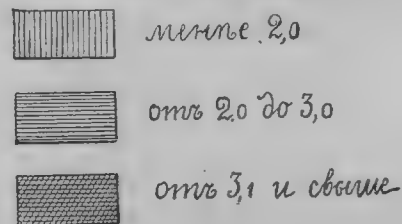 менѣе 2,0
отъ 2,0 до 3,0
отъ 3,1 и свыше